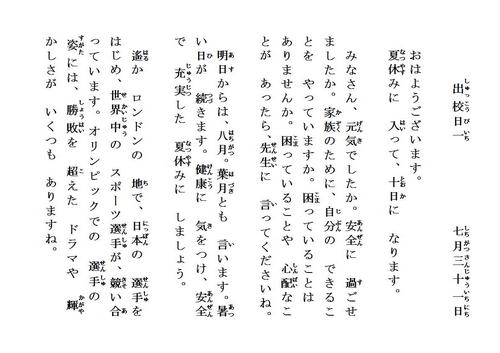 出校日一 七月三十一日
おはようございます。
夏休みに 入って、十日に なります。
みなさん、元気でしたか。安全に 過ごせ
ましたか。家族のために、自分の できるこ
とを やっていますか。困っていることは
ありませんか。困っていることや 心配なこ
とが あったら、先生に 言ってくださいね。
明日からは、八月。葉月とも 言います。暑
い日が 続きます。健康に 気をつけ、安全
で 充実した 夏休みに しましょう。
遙か ロンドンの 地で、日本の 選手を
はじめ、世界中の スポーツ選手が、競い合
っています。オリンピックでの 選手の
姿には、勝敗を 超えた ドラマや 輝
かしさが いくつも ありますね。